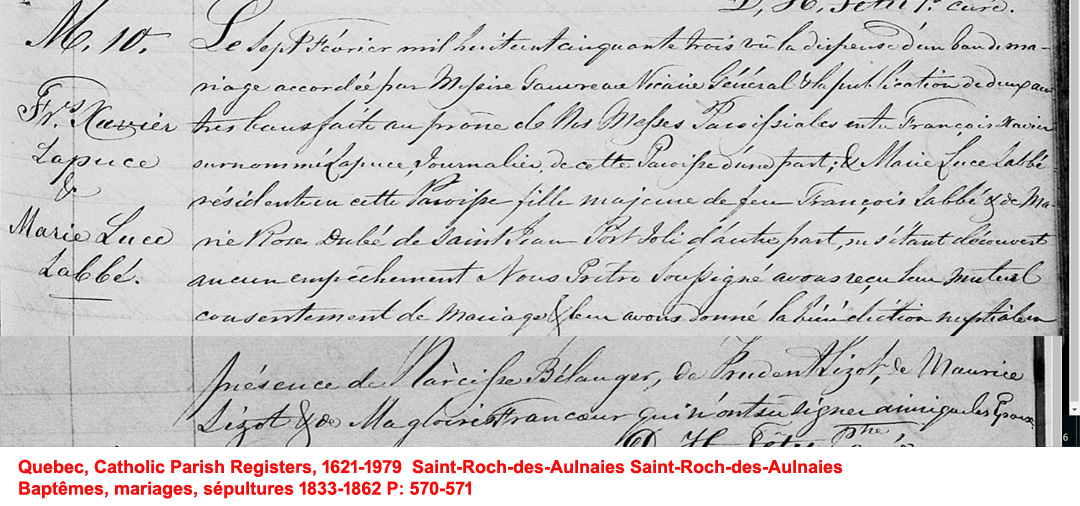 D. H. Têtu Ptre curé.
M. 10.
Frs Xavier
Lapuce
&
Marie Luce
Labbé.
Le sept Février mil huit cent cinquante trois vû la dispense d'un ban de ma-
riage accordée par Messire Gauvreau Vicaire Général & la publication de deux au
tres bans faite au prône de Nos Messes Paroissiales entre François Xavier
surnommé Lapuce, Journalier, de cette Paroisse d'une part; & Marie Luce Labbé
résidente en cette Paroisse fille majeure de feu François Labbé & de Ma-
rie Rose Dubé de Saint Jean Port Joli d'autre part, ne s'étant découvert
aucun empêchement Nous Prêtre Soussigné avons reçu leur mutuel
consentement de Mariage & leur avons donné la bénédiction nuptiale en
présence de Narcisse Bélanger, de Prudent Lizot, de Maurice
Lizot & de Magloire Francœur qui n'ont su signer ainsi que les Epoux.
D. H. Têtu Ptre
6
Quebec, Catholic Parish Registers, 1621-1979 Saint-Roch-des-Aulnaies Saint-Roch-des-Aulnaies
Baptêmes, mariages, sépultures 1833-1862 P: 570-571